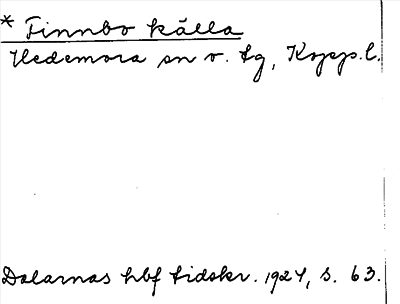 * Finnbo källa
Hedemora sn v. tg, Kopp. l.
Dalarnas hbf tidskr. 1924, s. 63.